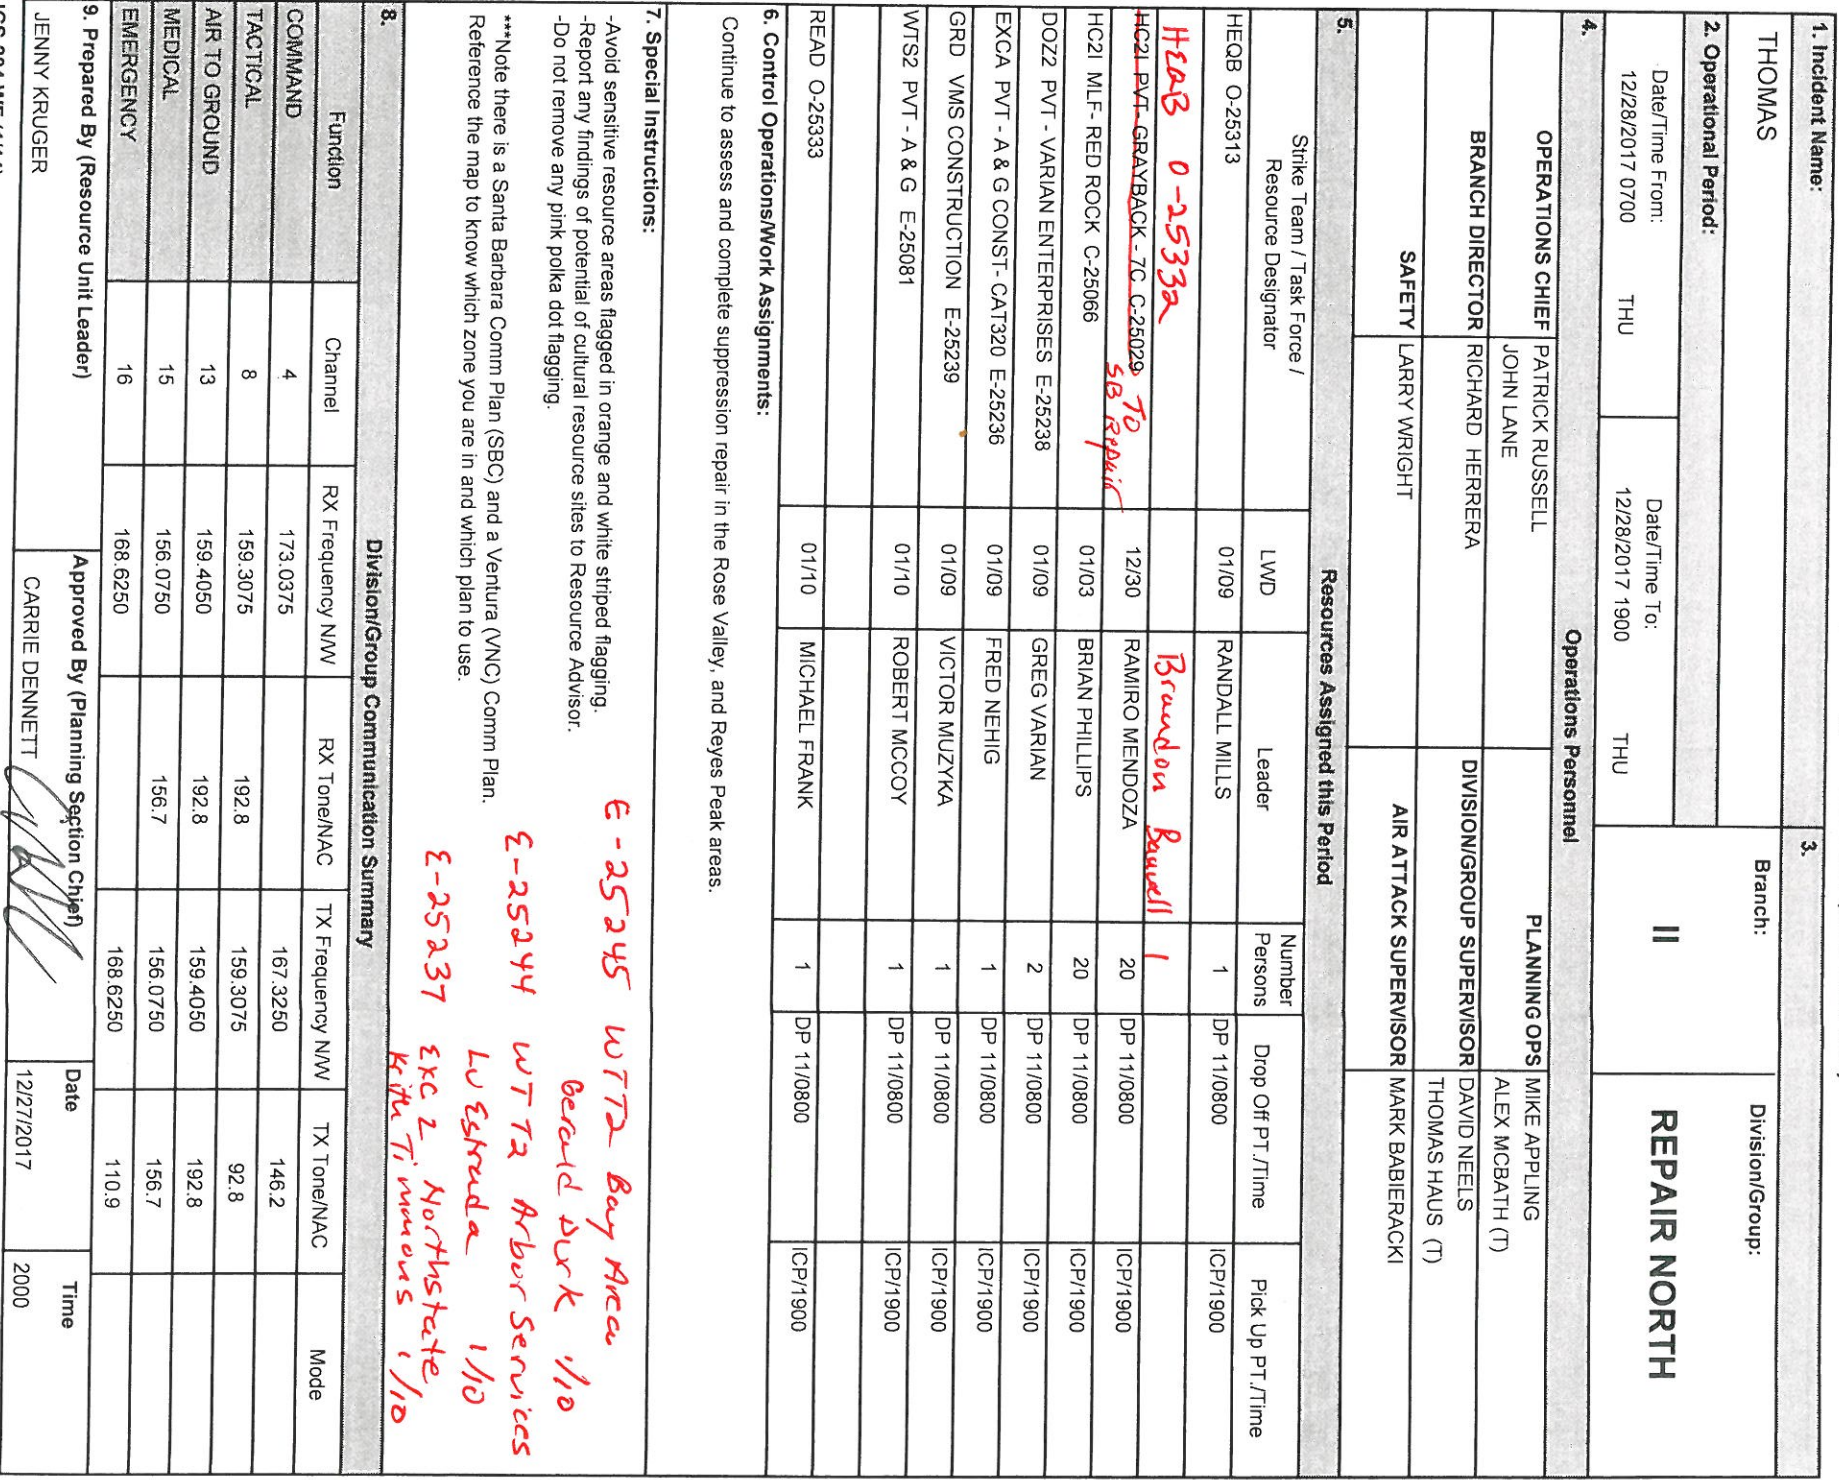 1. Incident Name:
THOMAS
3.
Branch:
II
Division/Group:
REPAIR NORTH
2. Operational Period:
Date/Time From:
12/28/2017 0700 THU
Date/Time To:
12/28/2017 1900 THU
4. Operations Personnel
OPERATIONS CHIEF PATRICK RUSSELL
JOHN LANE
PLANNING OPS MIKE APPLING
ALEX MCBATH (T)
BRANCH DIRECTOR RICHARD HERRERA
DIVISION/GROUP SUPERVISOR DAVID NEELS
THOMAS HAUS (T)
SAFETY LARRY WRIGHT
AIR ATTACK SUPERVISOR MARK BABIERACKI
5. Resources Assigned this Period
Strike Team / Task Force / Resource Designator LWD Leader Number Persons Drop Off PT./Time Pick Up PT./Time
HEQB O-25313 01/09 RANDALL MILLS 1 DP 11/0800 ICP/1900
HEQB O-25332 Brandon 1
HC2I PVT- GRAYBACK - 7C C-25029 12/30 RAMIRO MENDOZA 20 DP 11/0800 ICP/1900
TO
SB Repair
HC2I MLF- RED ROCK C-25066 01/03 BRIAN PHILLIPS 20 DP 11/0800 ICP/1900
DOZ2 PVT - VARIAN ENTERPRISES E-25238 01/09 GREG VARIAN 2 DP 11/0800 ICP/1900
EXCA PVT - A & G CONST- CAT320 E-25236 01/09 FRED NEHIG 1 DP 11/0800 ICP/1900
GRD VMS CONSTRUCTION E-25239 01/09 VICTOR MUZYKA 1 DP 11/0800 ICP/1900
WTS2 PVT - A & G E-25081 01/10 ROBERT MCCOY 1 DP 11/0800 ICP/1900
READ O-25333 01/10 MICHAEL FRANK 1 DP 11/0800 ICP/1900
6. Control Operations/Work Assignments:
Continue to assess and complete suppression repair in the Rose Valley, and Reyes Peak areas.
7. Special Instructions:
-Avoid sensitive resource areas flagged in orange and white striped flagging.
-Report any findings of potential of cultural resource sites to Resource Advisor.
-Do not remove any pink polka dot flagging.
***Note there is a Santa Barbara Comm Plan (SBC) and a Ventura (VNC) Comm Plan.
Reference the map to know which zone you are in and which plan to use.
E-25245 WTT2 Bay Area
Gerald Durk 1/10
E-25244 WTT2 Arbor Services
Lu Estrada 1/10
E-25237 EXC 2 Northstate
Keith Timmons 1/10
8. Division/Group Communication Summary
Function Channel RX Frequency N/W RX Tone/NAC TX Frequency N/W TX Tone/NAC Mode
COMMAND 4 173.0375 167.3250 146.2
TACTICAL 8 159.3075 192.8 159.3075 92.8
AIR TO GROUND 13 159.4050 192.8 159.4050 192.8
MEDICAL 15 156.0750 156.7 156.0750 156.7
EMERGENCY 16 168.6250 168.6250 110.9
9. Prepared By (Resource Unit Leader) Approved By (Planning Section Chief) Date Time
JENNY KRUGER CARRIE DENNETT 12/27/2017 2000